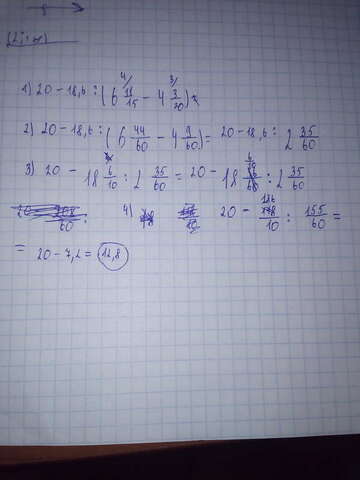 1) 20 - 18,6 : (6 11/15 - 4 3/20)
2) 20 - 18,6 : (6 44/60 - 4 9/60) = 20 - 18,6 : 2 35/60
3) 20 - 18 6/10 : 2 35/60 = 20 - 18 6/10 : 2 35/60
4) 20 - 186/10 : 155/60 =
= 20 - 7,2 = 12,8